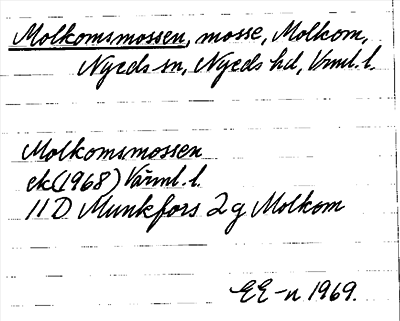 Molkomsmossen, mosse, Molkom,
Nyeds sn, Nyeds hd, Vrml. l.
Molkomsmossen
ek (1968) Värml. l.
11D Munkfors 2g Molkom
EE-n 1969.